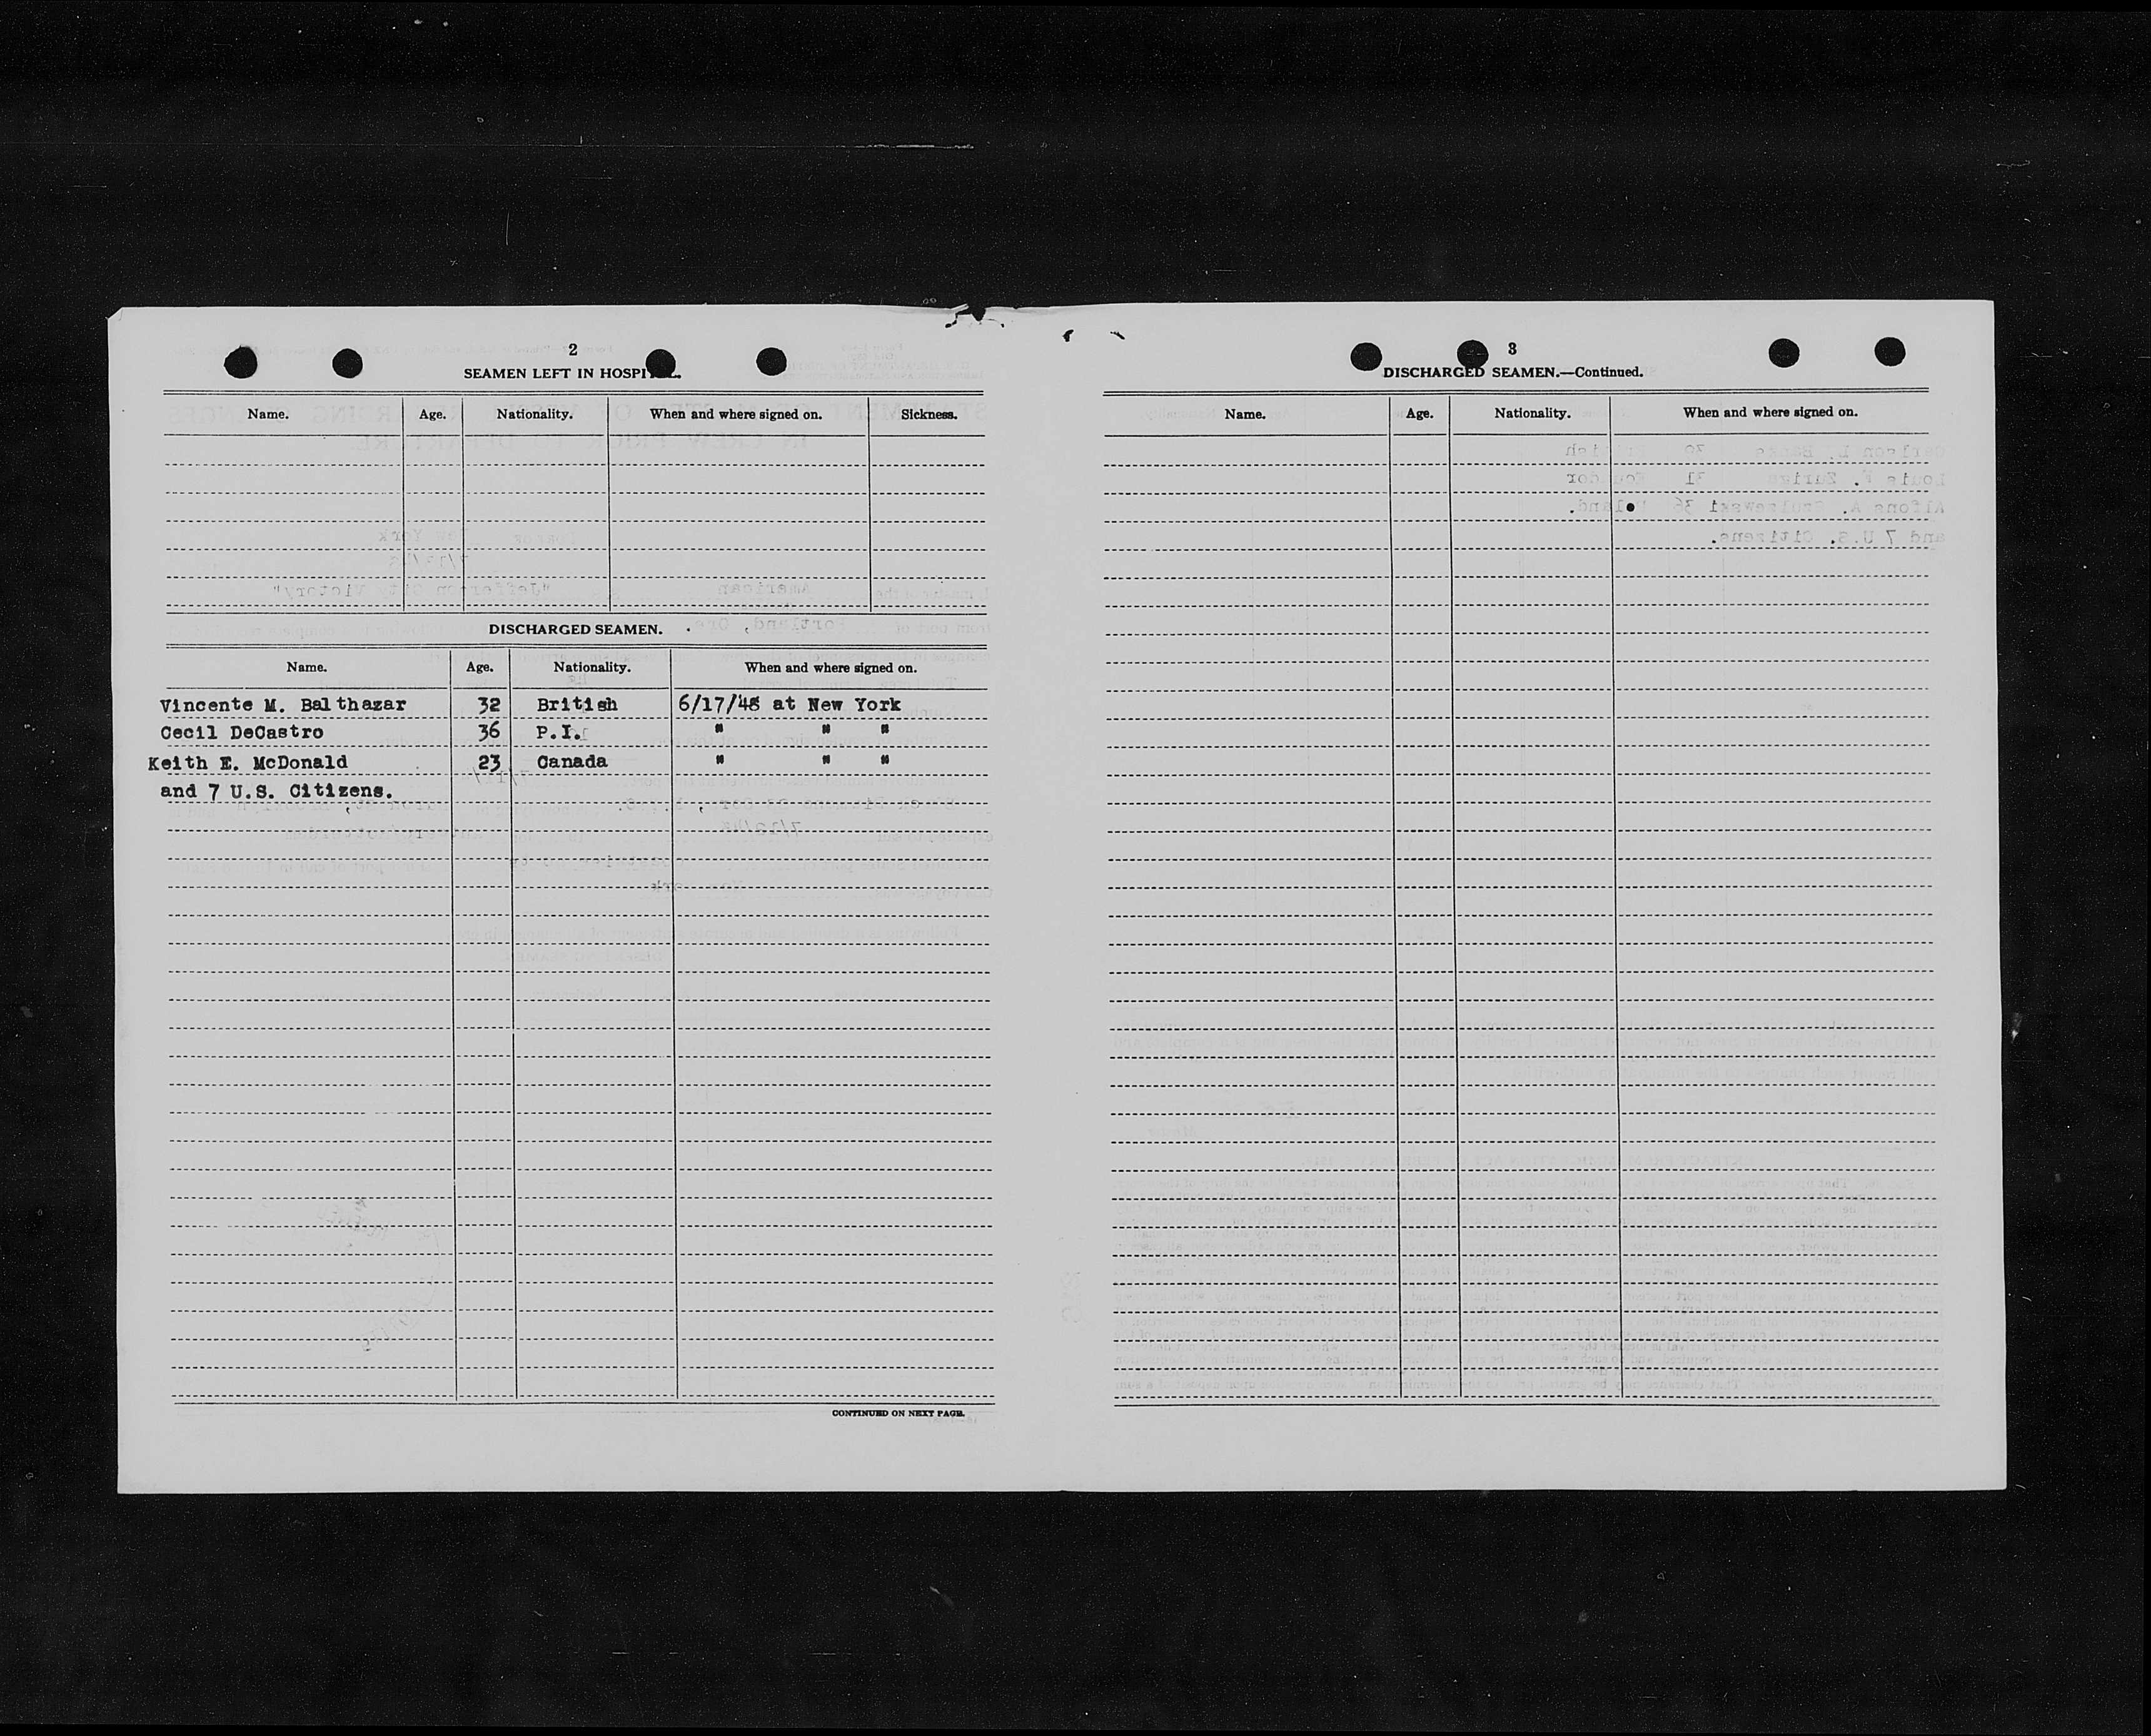 2
SEAMEN LEFT IN HOSPI
Name. Age. Nationality. When and where signed on. Sickness.
DISCHARGED SEAMEN.
Name. Age. Nationality. When and where signed on.
Vincente M. Balthazar 32 British 6/17/48 at New York
Cecil DeCastro 36 P.I. " " "
Keith E. McDonald 23 Canada " " "
and 7 U.S. Citizens.
CONTINUED ON NEXT PAGE.
3
DISCHARGED SEAMEN.—Continued.
Name. Age. Nationality. When and where signed on.